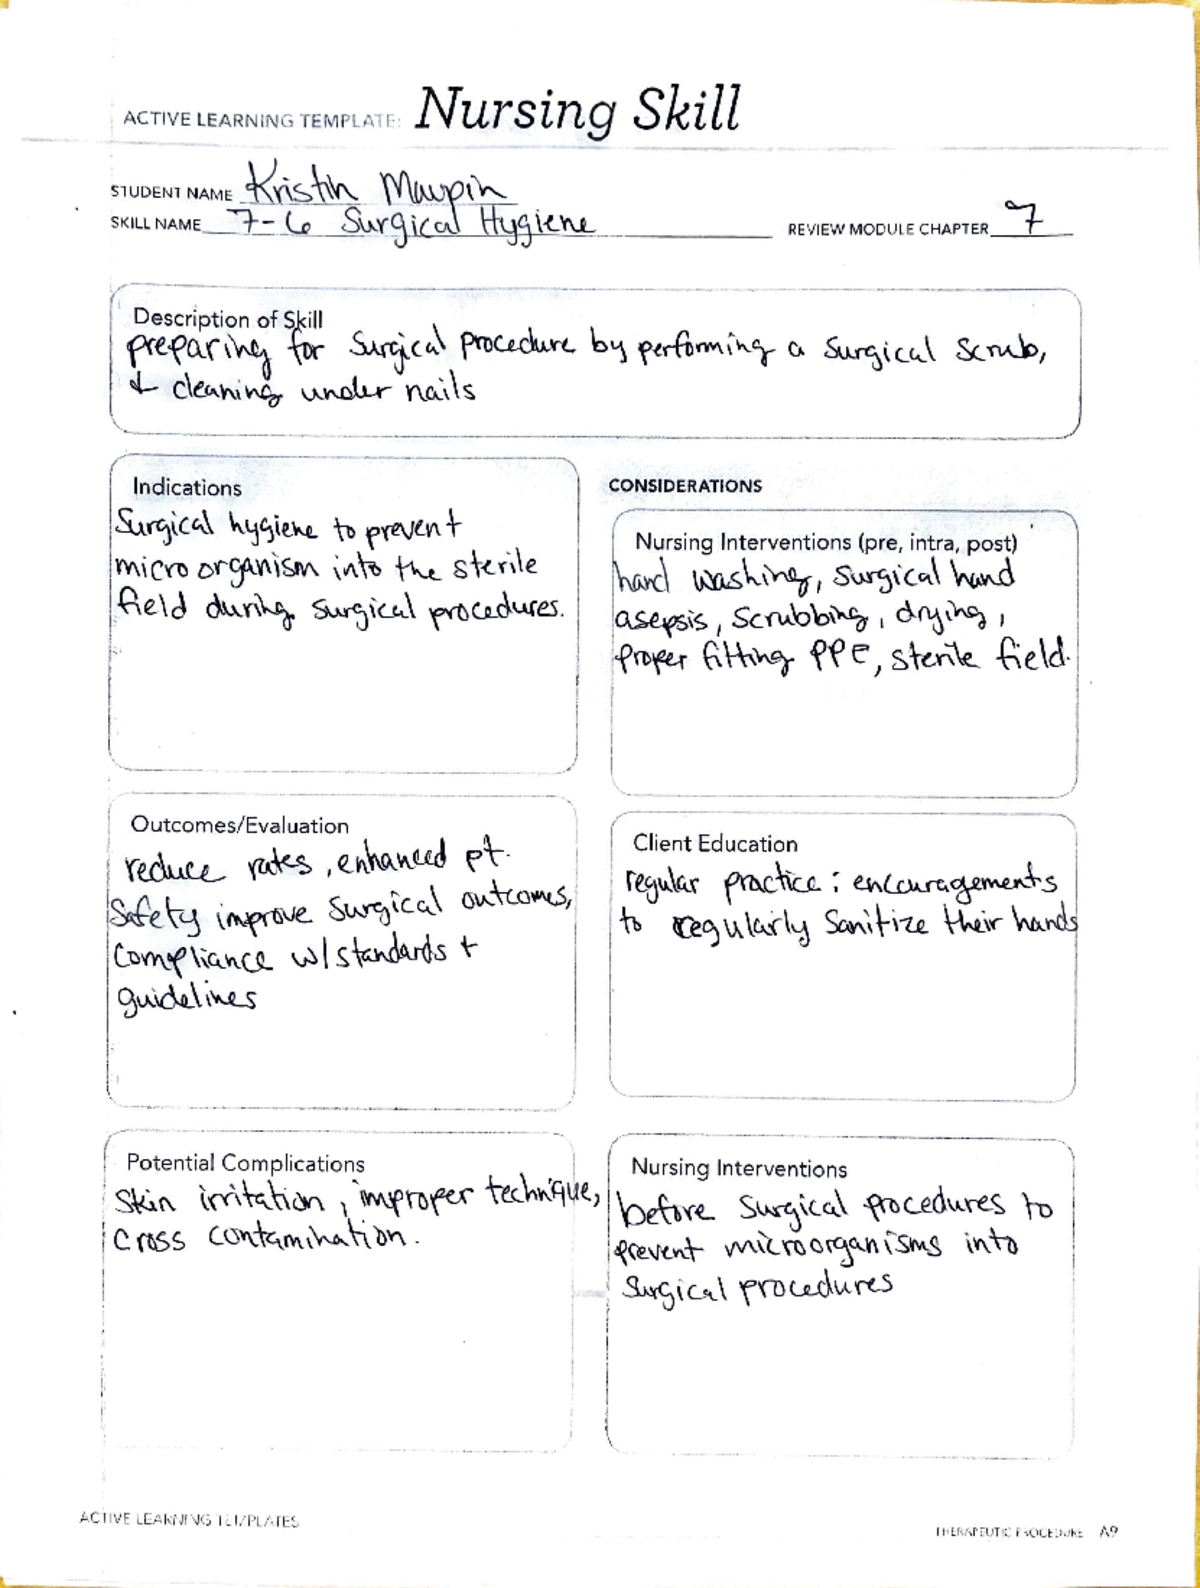 ACTIVE LEARNING TEMPLATE: Nursing Skill
STUDENT NAME Kristin Maupin
SKILL NAME 7-6 Surgical Hygiene
REVIEW MODULE CHAPTER 7
Description of Skill
preparing for Surgical procedure by performing a Surgical Scrub,
& cleaning under nails
Indications
Surgical hygiene to prevent
microorganism into the sterile
field during surgical procedures.
CONSIDERATIONS
Nursing Interventions (pre, intra, post)
hand washing, surgical hand
asepsis, scrubbing, drying,
proper fitting PPE, sterile field.
Outcomes/Evaluation
reduce rates, enhanced pt.
Safety improve surgical outcomes,
compliance w/standards +
guidelines
Client Education
regular practice: encouragements
to regularly sanitize their hands
Potential Complications
Skin irritation, improper technique,
cross contamination.
Nursing Interventions
before surgical procedures to
prevent microorganisms into
surgical procedures
ACTIVE LEARNING TEMPLATES
THERAPEUTIC PROCEDURE A9